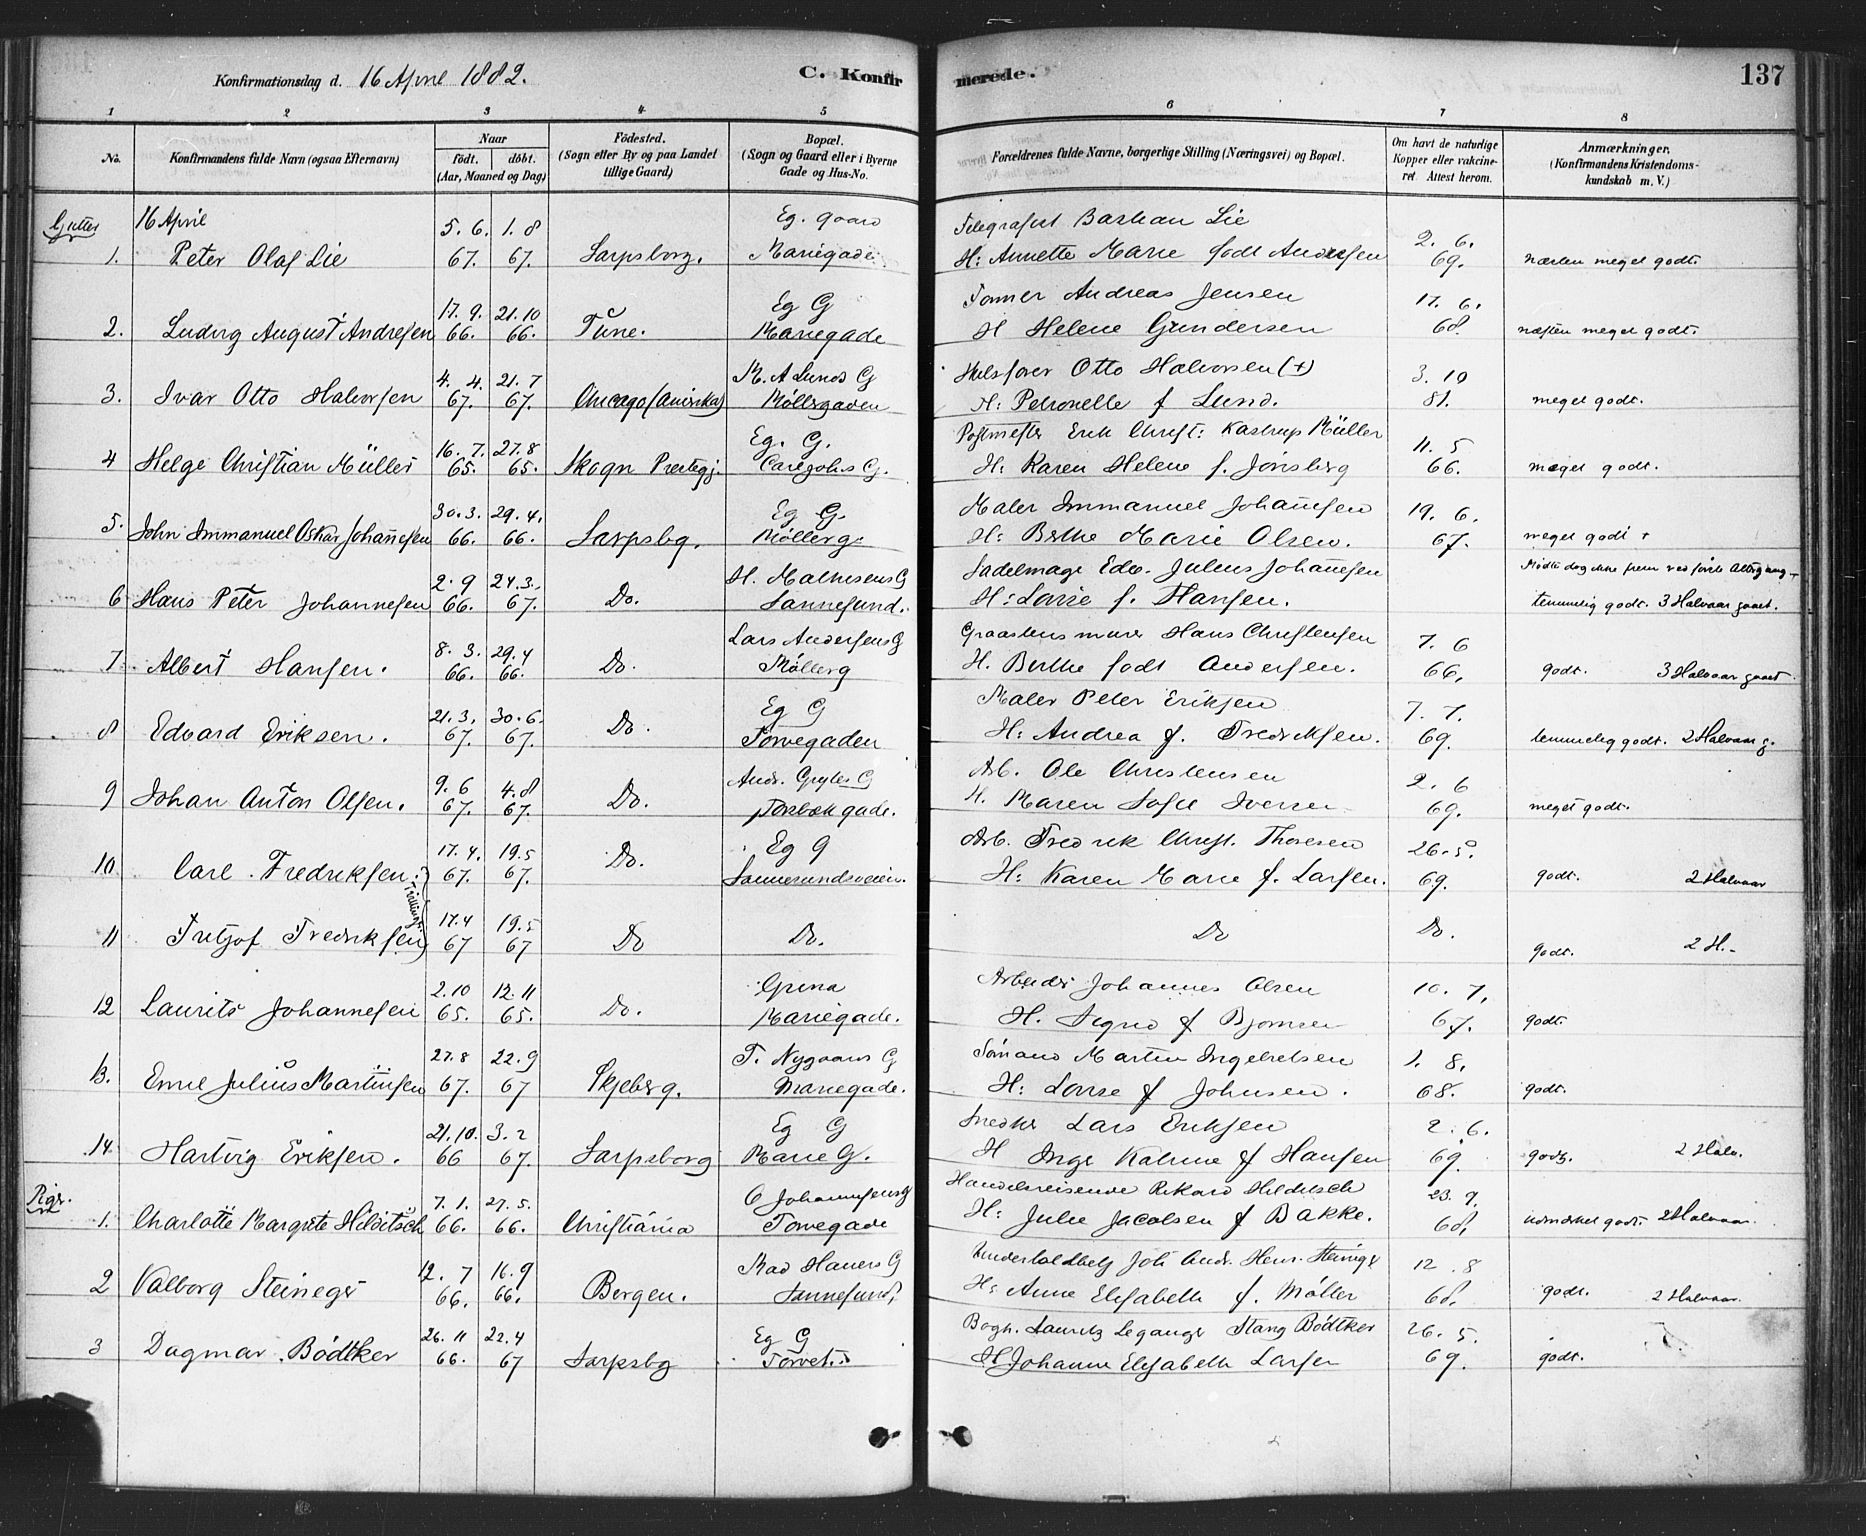 Konfirmationsdag d. 16 April 1882.
C. Konfirmerede.
137
1 2 3 4 5 6 7 8
No.
Konfirmandens fulde Navn (ogsaa Efternavn)
Naar
födt. döbt.
(Aar, Maaned og Dag)
Födested.
(Sogn eller By og paa Landet
tillige Gaard)
Bopæl.
(Sogn og Gaard eller i Byerne
Gade og Hus-No.
Forældrenes fulde Navne, borgerlige Stilling (Næringsvei) og Bopæl.
Om havt de naturlige
Kopper eller vakcine-
ret Attest herom.
Anmærkninger,
(Konfirmandens Kristendoms-
kundskab m. V.)
Gutter 16 April 5. 6. 1. 8 Eg. gaard Telegrafist Bastian Lie 2. 6.
1. Peter Olaf Lie 67. 67. Sarpsborg. Mariegade. H: Annette Marie födt Andresen 69. næsten meget godt.
17. 9. 21. 10 Eg G Tömmer Andreas Jensen 17. 6.
2. Ludvig August Andresen 66. 66. Tune. Mariegade H Helene Gundersen 68. næsten meget godt.
4. 4. 21. 7 M. A Lunds G Otto Halvorsen (+) 3. 10
3. Ivar Otto Halvorsen 67. 67. Chicago (Amerika) Möllergaden H: Petronelle f Lund. 81. meget godt.
16. 7. 27. 8 Eg. G. Postmester Erik Christ: Kastrup Müller 11. 5
4 Helge Christian Müller 65. 65. Skogn Præstegj. G. H: Karen Helene f. Jönsberg 66. meget godt.
30. 3. 29. 4. Eg G. Maler Immanuel Johannesen 19. 6.
5. John Immanuel Oskar Johannesen 66. 66. Sarpsbg. Mötlerg. H: Berthe Marie Olsen. 67. meget godt +
2. 9 24. 3. H. Mathisens G Sadelmager Edv. Julius Johannesen Mödte dog ikke frem ved förste Altergang +
6 Hans Peter Johannesen 66. 67. Do. Sannesund. H: Lovise f. Hansen. temmelig godt. 3 Halvaar gaaet.
8. 3. 29. 4 Lars Andersens G Graastensmurer Hans Christensen 7. 6
7 Albert Hansen. 66. 66. Do. Möllerg H. Berthe födt Andersen. 66. godt. 3 Halvaar gaaet
21. 3. 30. 6. Eg G Maler Peter Eriksen 7. 7.
8 Edvard Eriksen. 67. 67. Do. Torvegaden H: Andrea f. Fredriksen. 69. temmelig godt. 2 Halvaar g.
9. 6 4. 8 Andr. G Arb. Ole Christensen 2. 6
9 Johan Anton Olsen. 67. 67. Do. gade. H. Maren Sofie Iversen 69. meget godt.
17. 4. 19. 5 Eg G Arb. Fredrik Christ. Thoresen 26. 5.
10 Carl Fredriksen. 67. 67. Do. Sannesundsveien. H: Karen Marie f. Larsen. 69. godt. 2 Halvaar
Tvillinger
17. 4 19. 5
11 Fritjof Fredriksen 67 67 Do Do. Do Do. godt. 2 H.
2. 10 12. 11 Grina Arbeider Johannes Olsen 10. 7.
12 Laurits Johannesen 65. 65. Do. Mariegade. H. Signe f Bjørnsen 67. godt.
27. 8 22. 9 T. Nygaards G Sömand Martin Ingebretsen 1. 8.
13. Emil Julius Martinsen 67. 67 Skjeberg. Mariegade. H: Lovise f Johnsen. 68. godt.
21. 10. 3. 2 Eg G Snedker Lars Eriksen 2. 6.
14 Hartvig Eriksen. 66 67. Sarpsborg Marie G. H Inge Katrine f Hansen 69 godt. 2 Halv.
Piger. 7. 1. 27. 5. O Johannesens G Handelsreisende Rikard Hilditsch 23. 9.
1. Charlotte Margrete Hilditsch 66. 66. Christiania Torvegade H: Julie Jacobsen f Bakke. 68. udmærket godt. 2 Halvaar.
12. 7 16. 9 Mad Hauers G Joh. Andr. Henr. Steineger 12. 8
2 Valborg Steineger 66. 66. Bergen. Sannesund. H: Anne Elisabeth f. Möller 68. godt. 2 Halvaar.
26. 11 22. 4 Eg G Bogh. Lauritz Leganger Stang Bödtker 26. 5.
3 Dagmar Bödtker 66. 67 Sarpsbg Torvet. H Johanne Elisabeth Larsen 69. godt.